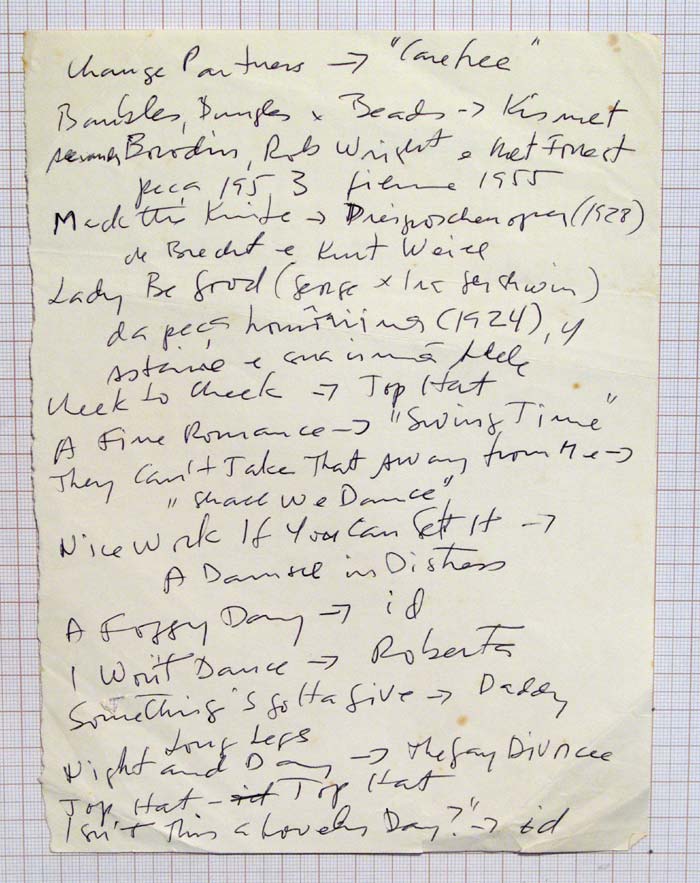 Change Partners → "Carefree"
Baubles, Bangles & Beads → Kismet
Borodin, Rob Wright e Chet Forrest
peça 1953 filme 1955
Mack the Knife → Dreigroschenoper (1928)
de Brecht e Kurt Weill
Lady Be Good (George & Ira Gershwin)
da peça homônima (1924), c/
Astaire e sua irmã Adele
Cheek to Cheek → Top Hat
A Fine Romance → "Swing Time"
They Can't Take That Away from Me →
"Shall We Dance"
Nice Work If You Can Get It →
A Damsel in Distress
A Foggy Day → id
I Won't Dance → Roberta
Something's gotta give → Daddy
Long Legs
Night and Day → The Gay Divorcee
Top Hat - id Top Hat
Isn't This a Lovely Day?" → id